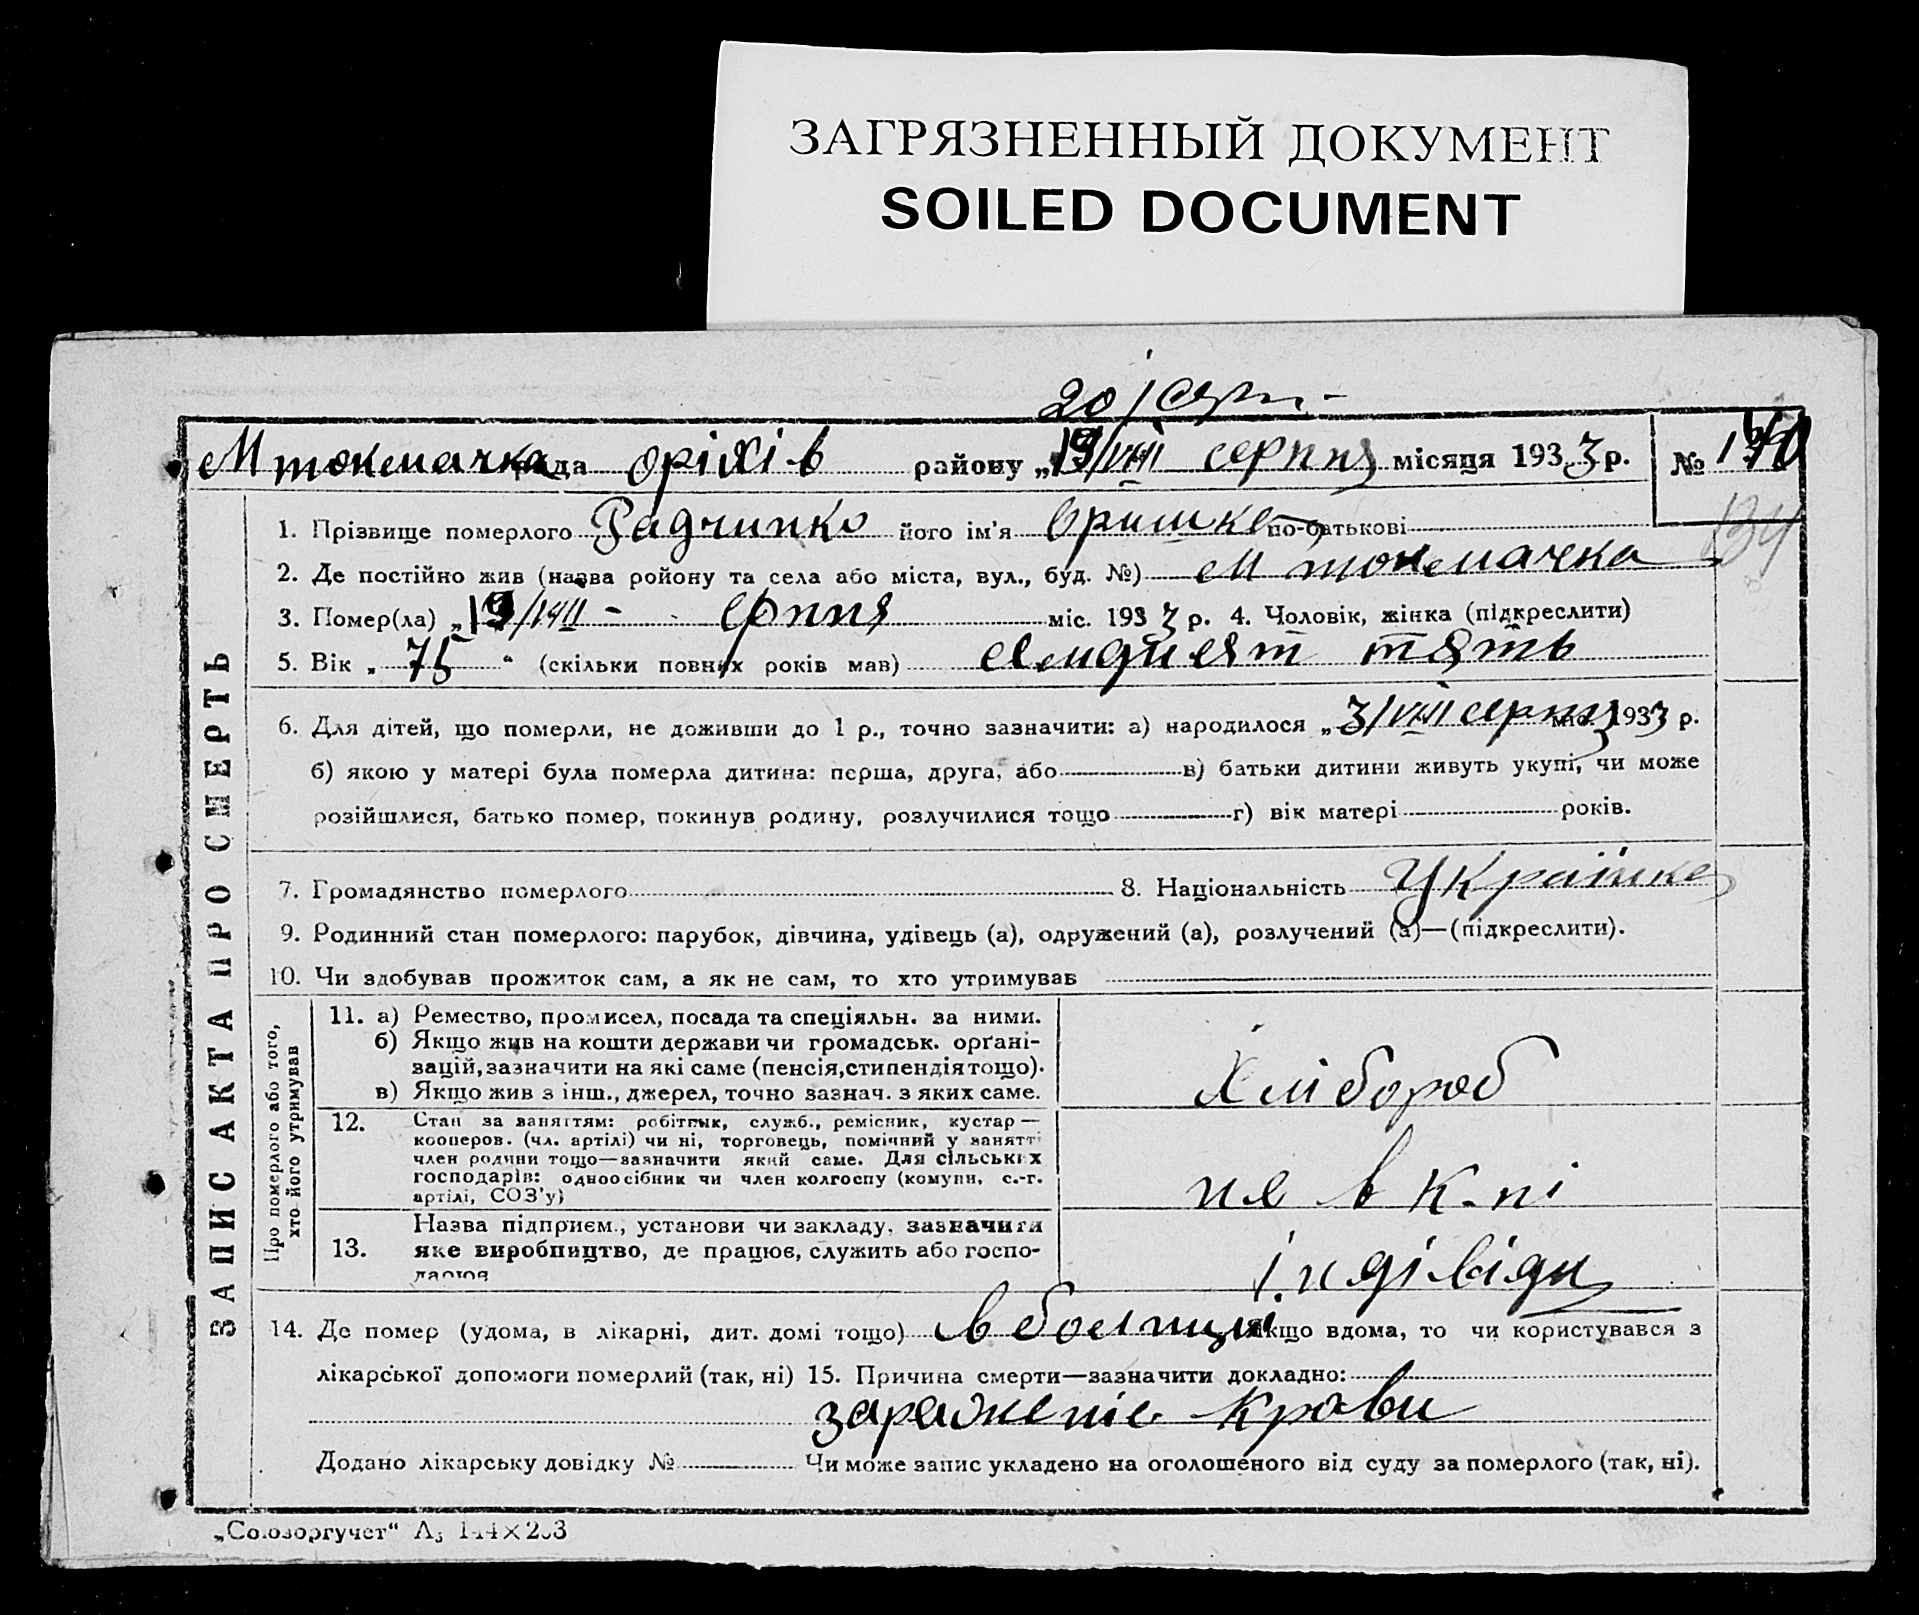 ЗАГРЯЗНЕННЫЙ ДОКУМЕНТ
SOILED DOCUMENT
20/серп.-
М токмачка рада оріхів району „19/VIII серпня місяця 1933 р. №
134
1. Прізвище померлого Радчинко його ім'я по-батькові
2. Де постійно жив (назва ройону та села або міста, вул., буд. №) М токмачка
3. Помер(ла) „19/VIII - серпня міс. 1933 р. 4. Чоловік, жінка (підкреслити)
5. Вік „ 75 “ (скільки повних років мав) семдисят пять
6. Для дітей, що померли, не доживши до 1 р., точно зазначити: а) народилося „3/VIII серпня міс. 1933 р.
б) якою у матері була померла дитина: перша, друга, або в) батьки дитини живуть укупі, чи може
розійшлися, батько помер, покинув родину, розлучилися тощо г) вік матері років.
7. Громадянство померлого 8. Національність Українка
9. Родинний стан померлого: парубок, дівчина, удівець (а), одружений (а), розлучений (а)—(підкреслити).
10. Чи здобував прожиток сам, а як не сам, то хто утримував
ЗАПИС АКТА ПРО СМЕРТЬ
Про померлого або того, хто його утримував
11. а) Ремество, промисел, посада та спеціяльн. за ними.
б) Якщо жив на кошти держави чи громадськ. орґані-
зацій, зазначити на які саме (пенсія, стипендія тощо).
в) Якщо жив з інш., джерел, точно зазнач. з яких саме.
Хлібороб
12. Стан за заняттям: робітник, служб., ремісник, кустар—
кооперов. (чл. артілі) чи ні, торговець, помічний у занятті
член родини тощо—зазначити який саме. Для сільських
господарів: одноосібник чи член колгоспу (комуни, с.-г.
артілі, СОЗ'у)
не в к-пі
13. Назва підприєм., установи чи закладу, зазначити
яке виробництво, де працює, служить або госпо-
дарює
індівідн
14. Де помер (удома, в лікарні, дит. домі тощо) в болници. Якщо вдома, то чи користувався з
лікарської допомоги померлий (так, ні) 15. Причина смерти—зазначити докладно:
зараженіе крови
Додано лікарську довідку № Чи може запис укладено на оголошеного від суду за померлого (так, ні).
„Союзоргучет“ А₅ 144×203